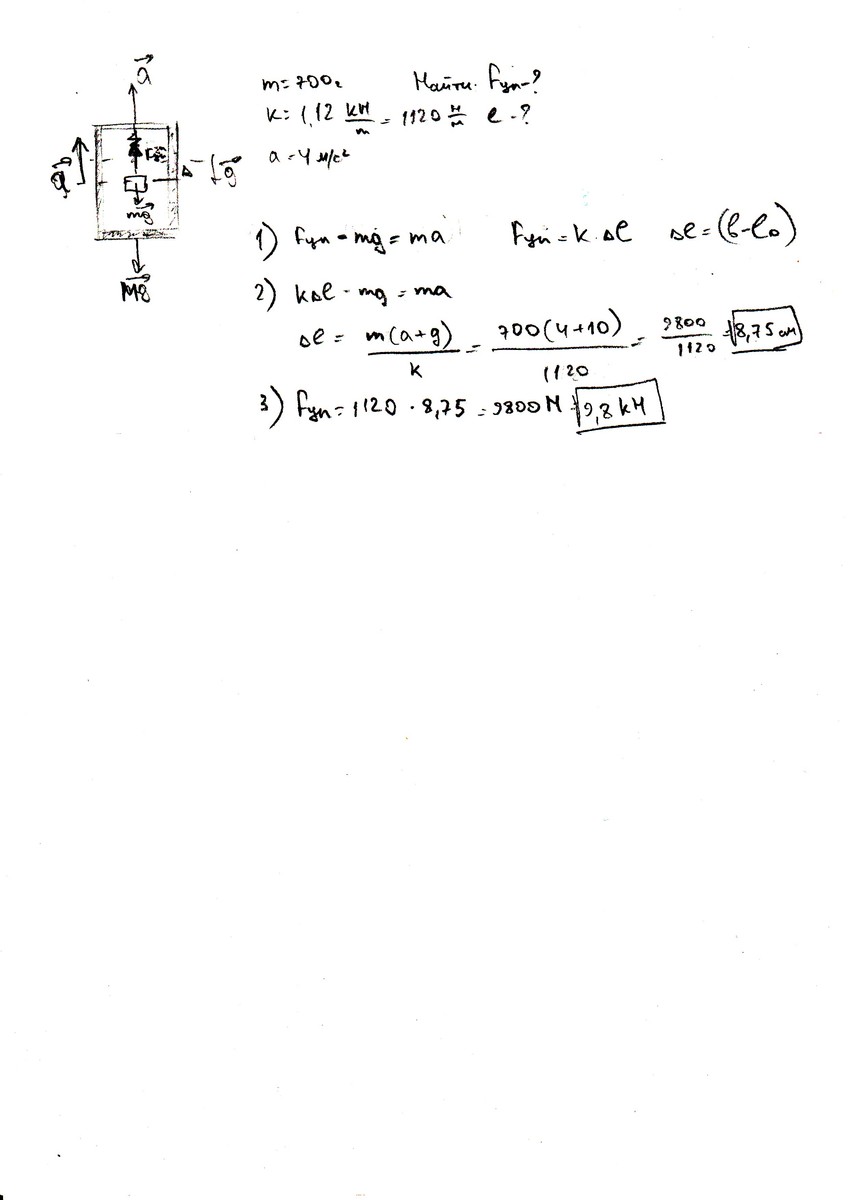 a
m = 700г Найти: Fуп - ?
k = 1,12 кН/m = 1120 Н/м l - ?
a = 4 м/с²
g
mg
Mg
1) Fуп - mg = ma Fуп = k · Δl Δl = (l - l₀)
2) kΔl - mg = ma
Δl = m(a+g)/k = 700(4+10)/1120 = 9800/1120 = 8,75 см
3) Fуп = 1120 · 8,75 = 9800 Н = 9,8 кН